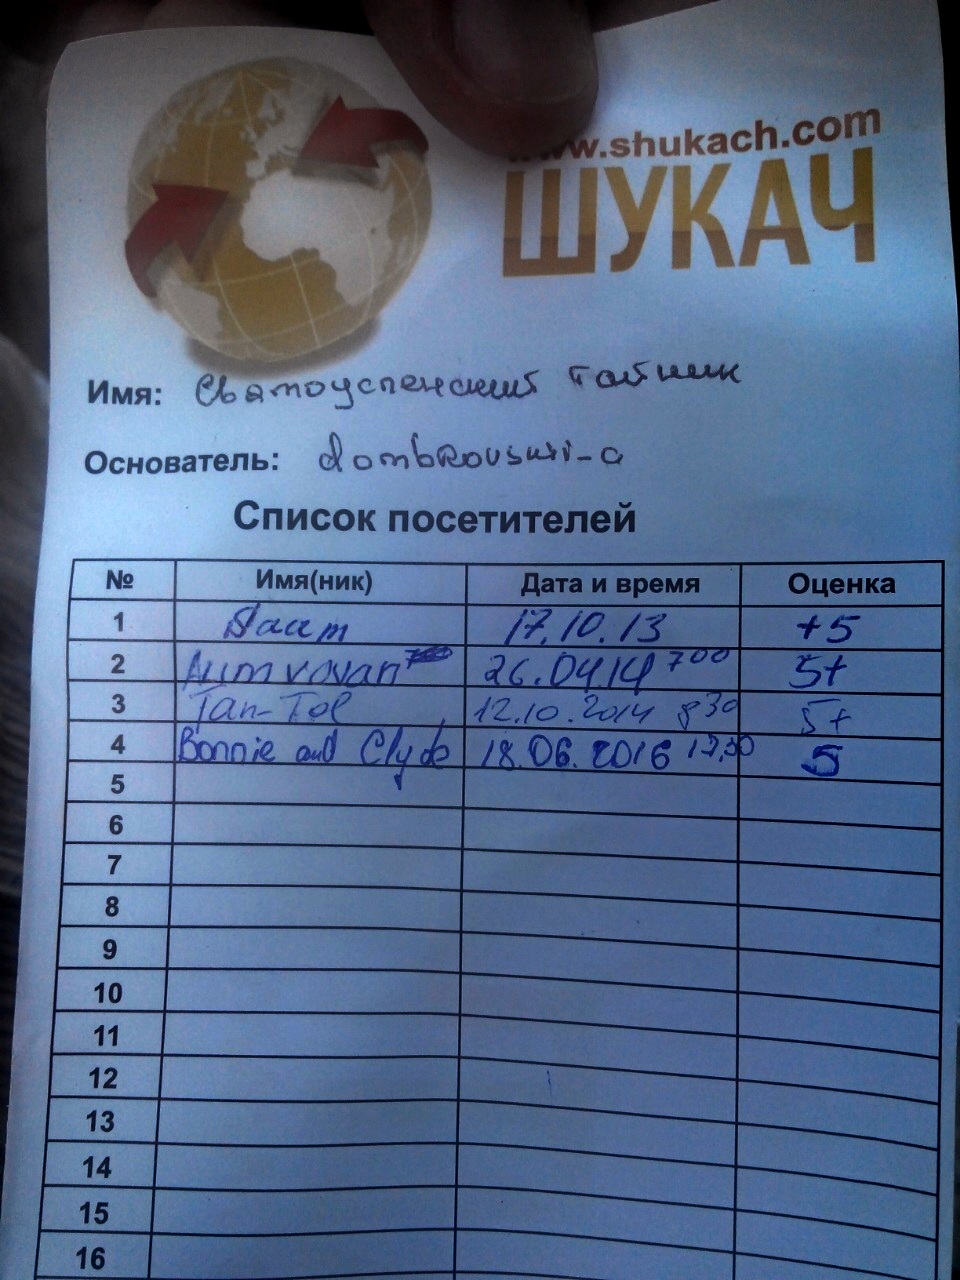 www.shukach.com
ШУКАЧ
Имя: Святоуспенский тайник
Основатель: dombrovskii-a
Список посетителей
№ Имя(ник) Дата и время Оценка
1 17.10.13 +5
2 26.04.14 7 00 5+
3 Tan-Tol 12.10.2014 8 30 5+
4 Bonnie and Clyde 18.06.2016 5
5
6
7
8
9
10
11
12
13
14
15
16